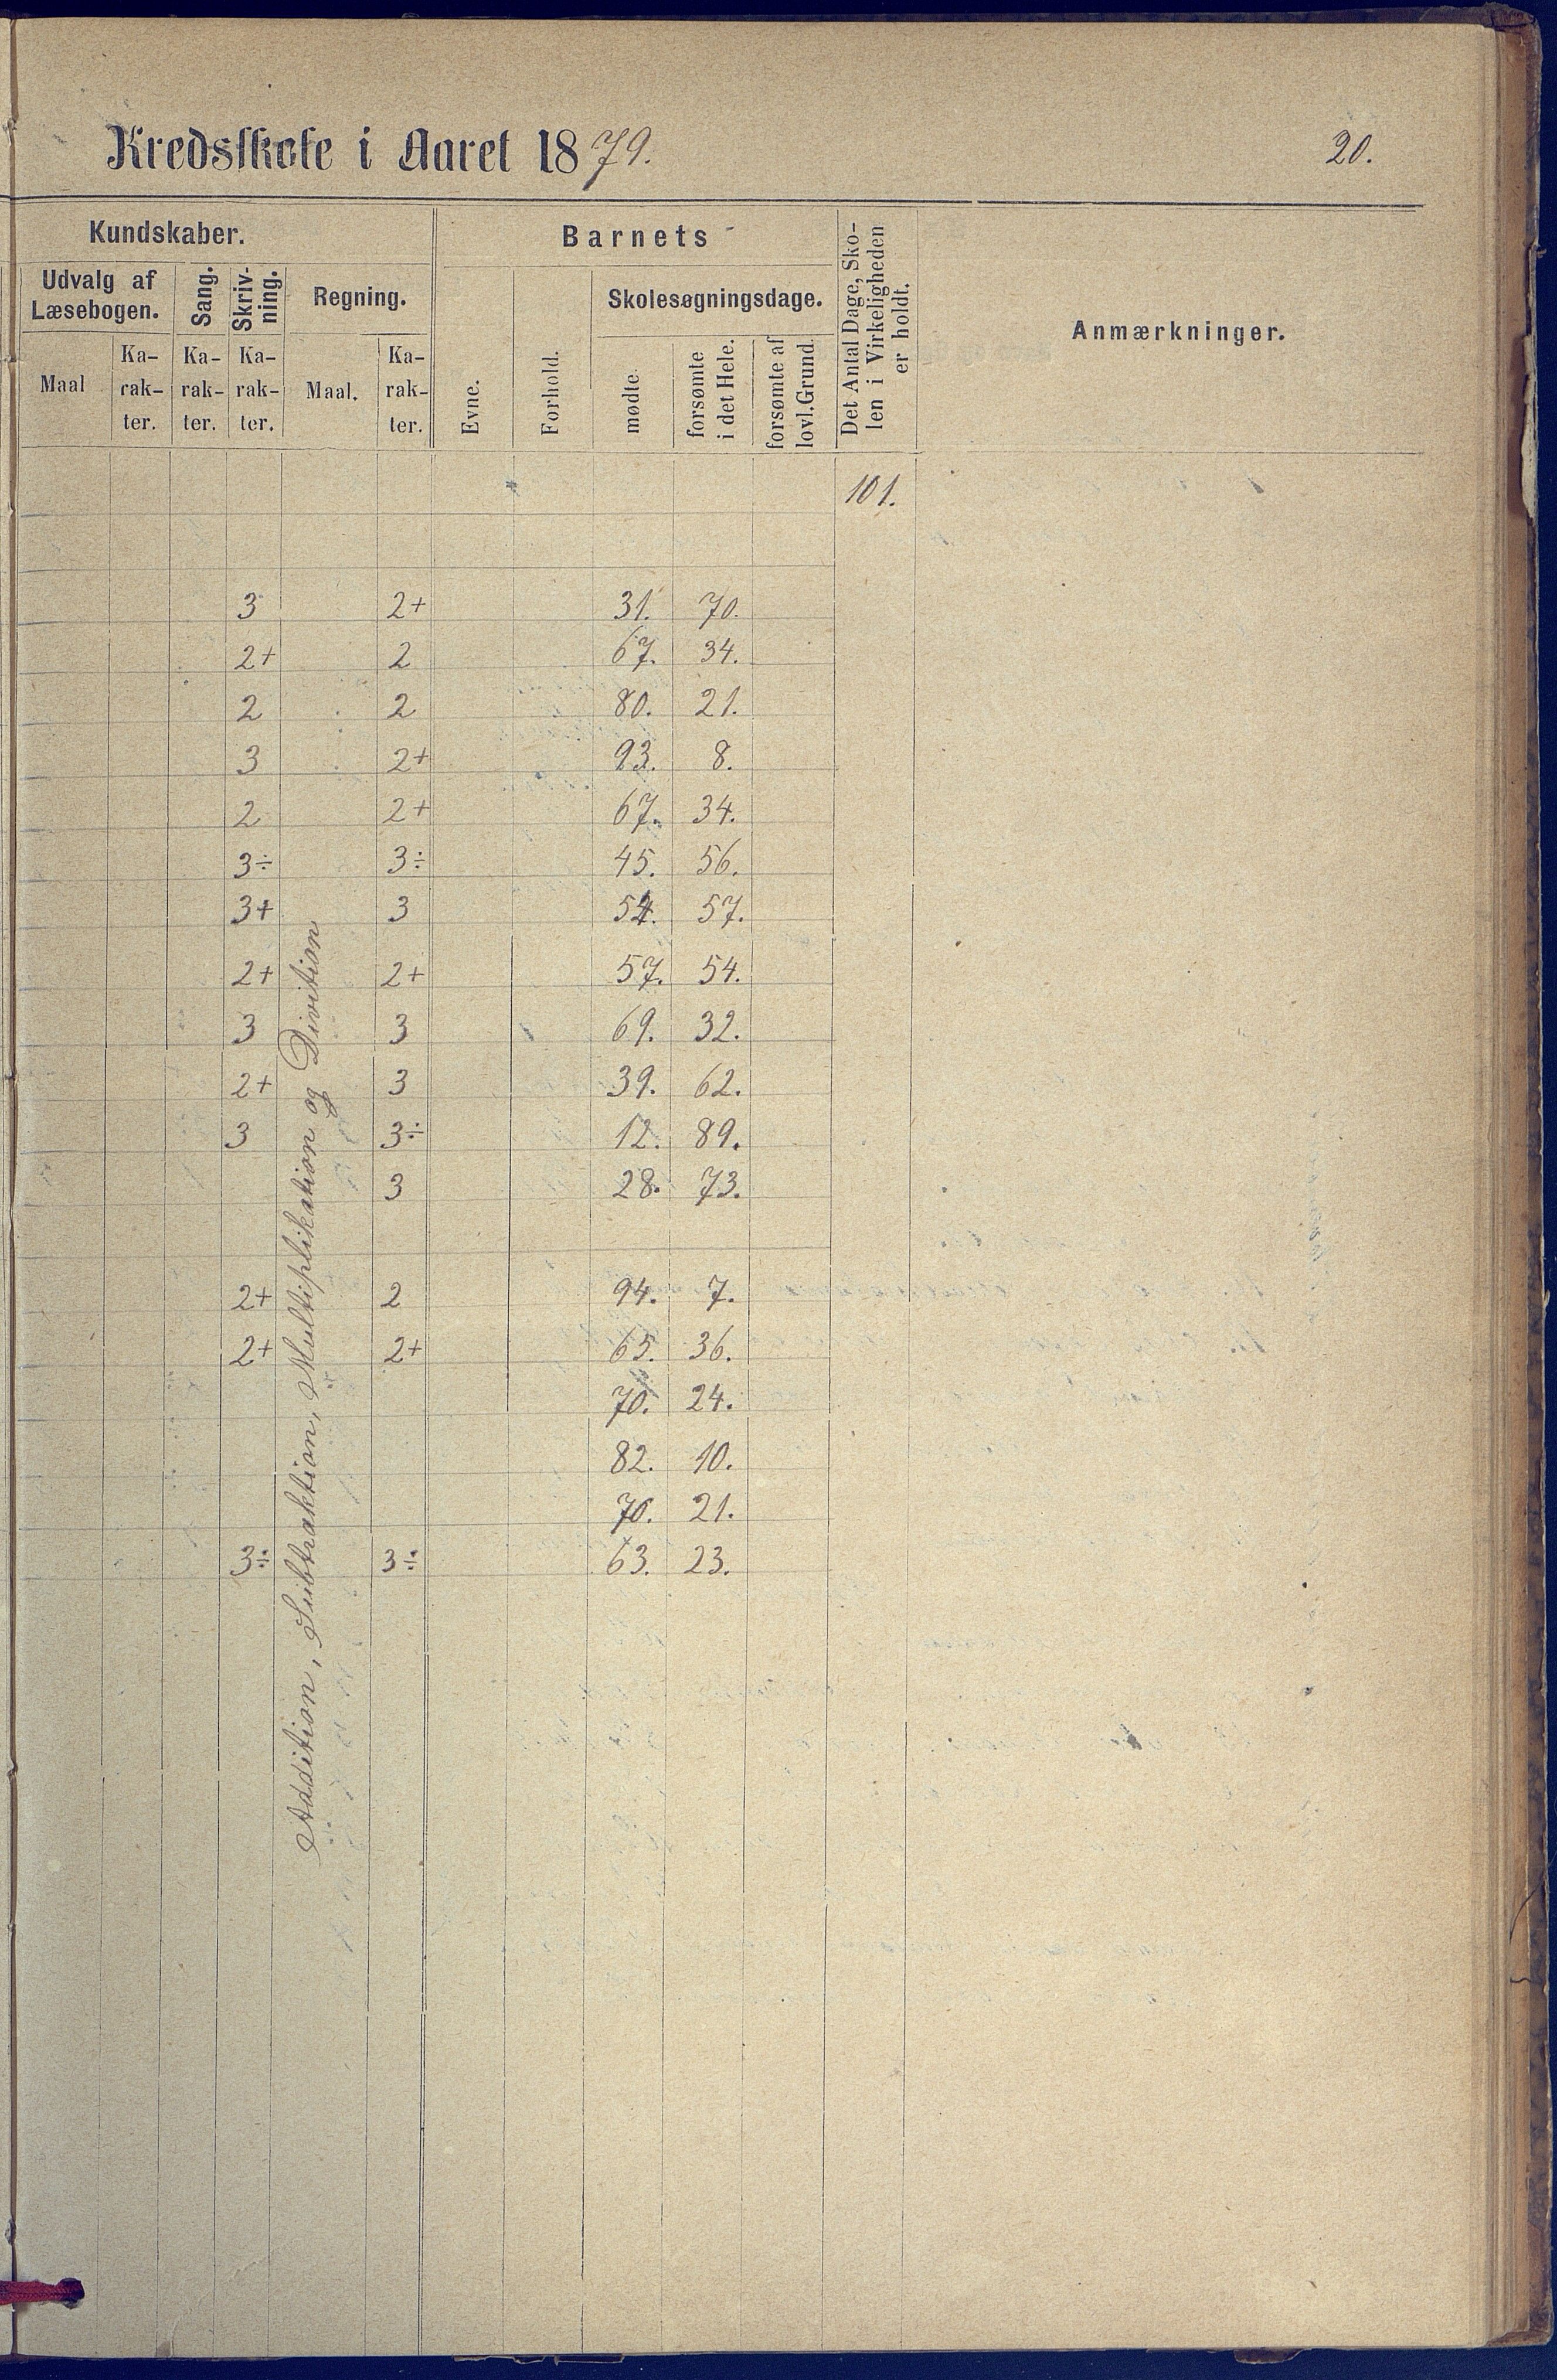 Kredsskole i Aaret 1879.
20.
Kundskaber.
Barnets
Det Antal Dage, Sko-
len i Virkeligheden
er holdt.
Anmærkninger.
Udvalg af
Læsebogen.
Sang.
Skriv-
ning.
Regning.
Evne.
Forhold.
Skolesøgningsdage.
Maal
Ka-
rak-
ter.
Ka-
rak-
ter.
Ka-
rak-
ter.
Maal.
Ka-
rak-
ter.
mødte
forsømte
i det Hele.
forsømte af
lovl. Grund.
101.
3 2+ 31. 70.
2+ 2 67. 34.
2 2 80. 21.
3 2+ 93. 8.
2 2+ 67. 34.
3÷ 3÷ 45. 56.
3+ 3 57.
2+ 2+ 57. 54.
3 3 69. 32.
2+ 3 39. 62.
3 3÷ 12. 89.
3 28. 73.
2+ 2 94. 7.
2+ 2+ 65. 36.
70. 24.
82. 10.
70. 21.
3÷ 3÷ 63. 23.
Addition, Subtraktion, Multiplikation og Divition